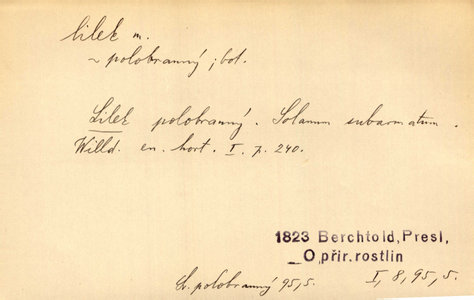 lilek m.
~ polobranný; bot.
Lilek polobranný. Solanum subarmatum.
Willd. en. hort. I. p. 240.
1823 Berchtold, Presl,
O přir. rostlin
I, 8, 95, 5.
L. polobranný 95, 5.